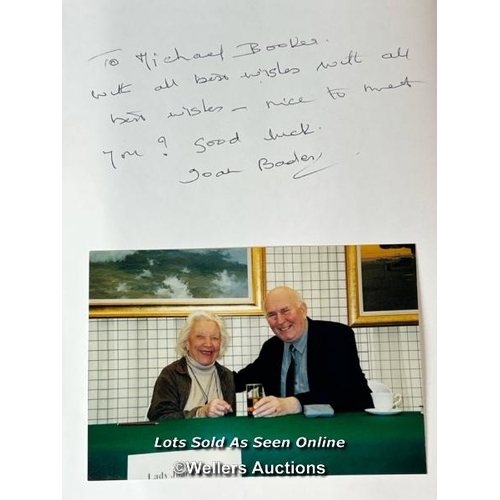 To Michael Booker.
with all best wishes with all
best wishes – nice to meet
you? Good luck.
Joan Bader
Lots Sold As Seen Online
Lady J
©Wellers Auctions